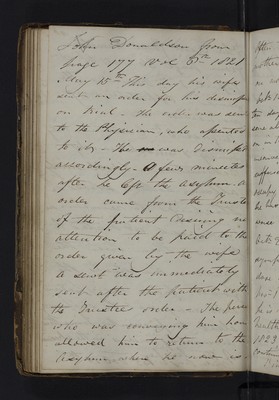 John Donaldson from
page 177 Vol 3rd 1821
May 15th This day his wife
sent an order for his dismissal
on trial - the order was sent
to the Physician, who assented
to it - He was dismissed
accordingly - A few minutes
after he left the Asylum a
order came from the Trustee
of the patient desiring no
attention to be paid to the
order given by the wife
a servt was immediately
sent after the patient with
the Trustees order - The person
who was conveying him home
allowed him to return to the
Asylum where he now is